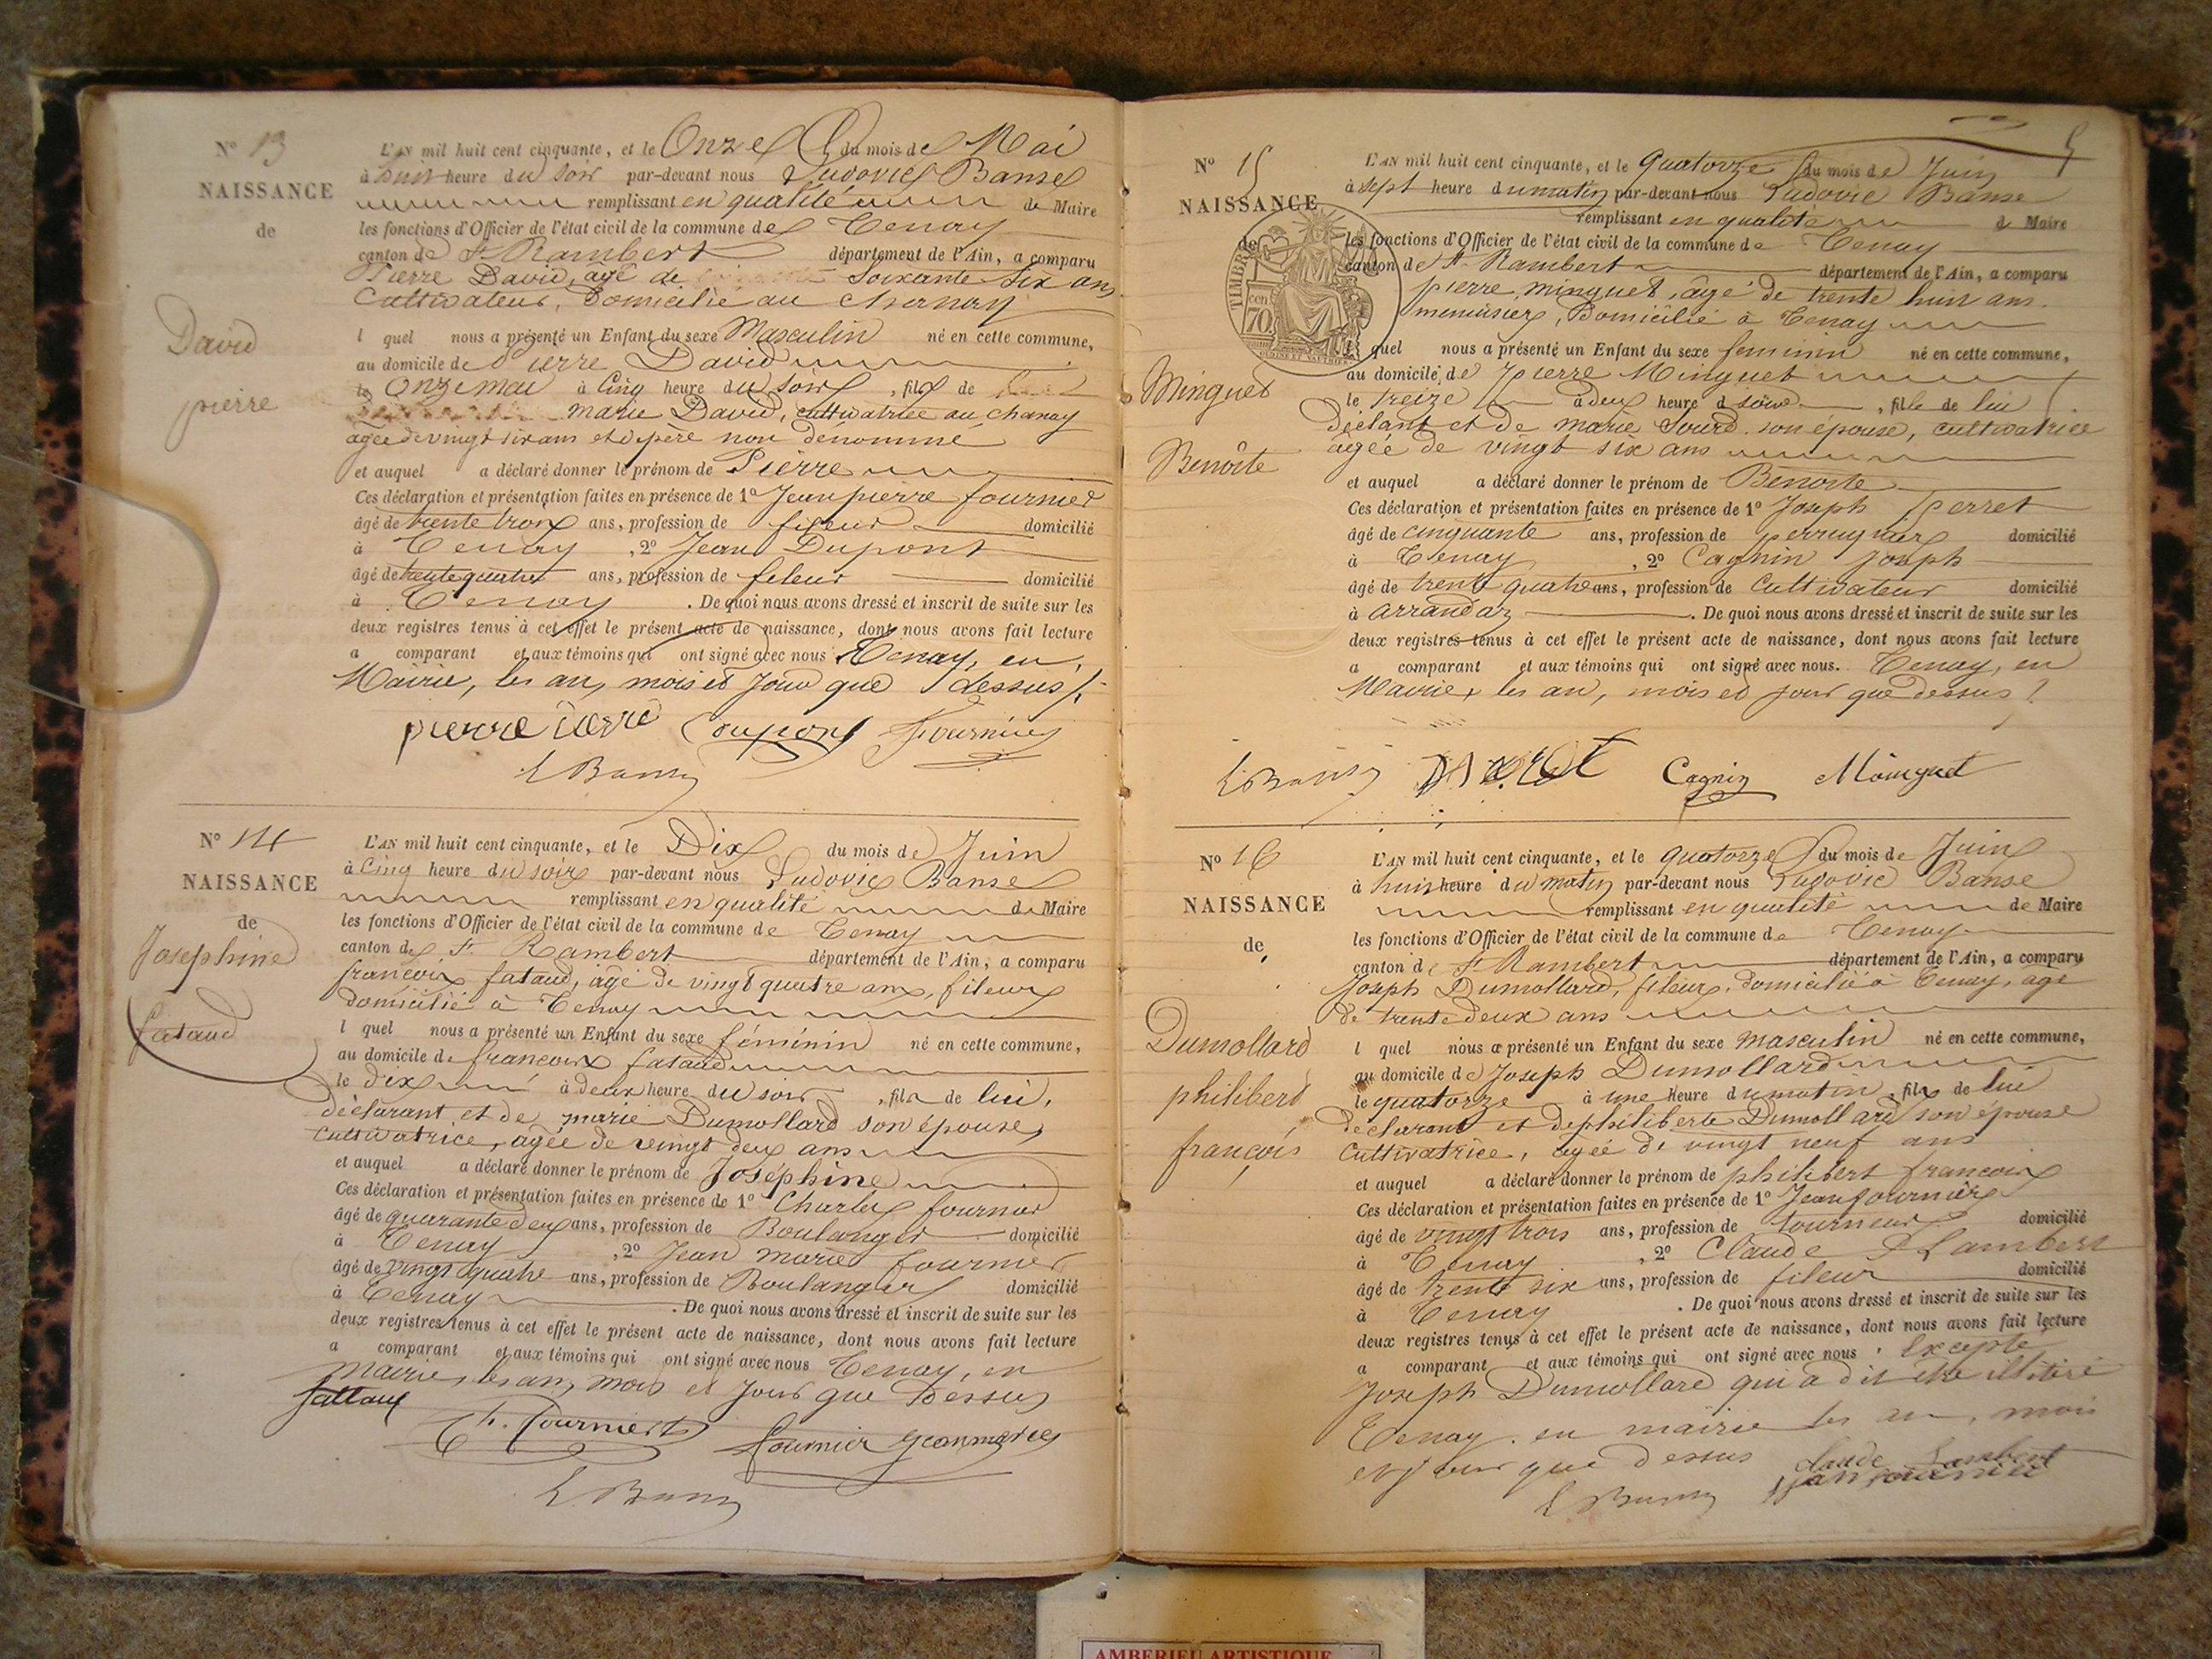 N° 13
NAISSANCE
de
David
pierre
L'AN mil huit cent cinquante, et le Onze du mois de Mai
à huit heure du soir par-devant nous Ludovic Banse
remplissant en qualité de Maire
les fonctions d'Officier de l'état civil de la commune de Tenay
canton de St Rambert département de l'Ain, a comparu
Pierre David, agé de soixante six ans
Cultivateur, Domicilié au chanay
l quel nous a présenté un Enfant du sexe Masculin né en cette commune,
au domicile de Pierre David
le Onze mai à Cinq heure du soir, fils de
marie David, cultivatrice au chanay
agée de vingt six ans et de père non dénommé
et auquel a déclaré donner le prénom de Pierre
Ces déclaration et présentation faites en présence de 1° Jean pierre fournier
âgé de trente trois ans, profession de fileur domicilié
à Tenay, 2° Jean Dupont
âgé de trente quatre ans, profession de fileur domicilié
à Tenay. De quoi nous avons dressé et inscrit de suite sur les
deux registres tenus à cet effet le présent acte de naissance, dont nous avons fait lecture
a comparant et aux témoins qui ont signé avec nous Tenay, en
Mairie, les an, mois et jour que dessus
pierre Dupont Fournier
L Banse
N° 14
NAISSANCE
de
Josephine
fataud
L'AN mil huit cent cinquante, et le Dix du mois de Juin
à Cinq heure du soir par-devant nous Ludovic Banse
remplissant en qualité de Maire
les fonctions d'Officier de l'état civil de la commune de Tenay
canton de St Rambert département de l'Ain, a comparu
françois fataud, agé de vingt quatre ans, fileur
domicilié à Tenay
l quel nous a présenté un Enfant du sexe féminin né en cette commune,
au domicile de françois fataud
le dix à deux heure du soir, fille de lui,
déclarant et de marie Dumollard son épouse,
cultivatrice, agée de vingt deux ans
et auquel a déclaré donner le prénom de Joséphine
Ces déclaration et présentation faites en présence de 1° Charles fournier
âgé de quarante deux ans, profession de Boulanger domicilié
à Tenay, 2° Jean marie fournier
âgé de vingt quatre ans, profession de Boulanger domicilié
à Tenay. De quoi nous avons dressé et inscrit de suite sur les
deux registres tenus à cet effet le présent acte de naissance, dont nous avons fait lecture
a comparant et aux témoins qui ont signé avec nous Tenay, en
mairie, les an, mois et jour que Dessus
fattaud
Ch. fournier fournier jeanmaries
L Banse
5
N° 15
NAISSANCE
de
TIMBRE
cen
70
Minguet
Benoite
L'AN mil huit cent cinquante, et le quatorze du mois de Juin
à sept heure du matin par-devant nous Ludovic Banse
remplissant en qualité de Maire
les fonctions d'Officier de l'état civil de la commune de Tenay
canton de St Rambert département de l'Ain, a comparu
pierre minguet, âgé de trente huit ans
menuisier, Domicilié à Tenay
l quel nous a présenté un Enfant du sexe feminin né en cette commune,
au domicile de pierre Minguet
le treize à deux heure d soir, fille de lui
déclant et de marie Sourd son épouse, cultivatrice
agée de vingt six ans
et auquel a déclaré donner le prénom de Benoite
Ces déclaration et présentation faites en présence de 1° Joseph perret
âgé de cinquante ans, profession de perruquier domicilié
à Tenay, 2° Cagnin Joseph
âgé de trente quatre ans, profession de Cultivateur domicilié
à arrandaz. De quoi nous avons dressé et inscrit de suite sur les
deux registres tenus à cet effet le présent acte de naissance, dont nous avons fait lecture
a comparant et aux témoins qui ont signé avec nous. Tenay, en
Mairie, les an, mois et jour que dessus
L Banse Cagnin Minguet
N° 16
NAISSANCE
de
Dumollard
philibert
françois
L'AN mil huit cent cinquante, et le quatorze du mois de Juin
à huit heure du matin par-devant nous Ludovic Banse
remplissant en qualité de Maire
les fonctions d'Officier de l'état civil de la commune de Tenay
canton de St Rambert département de l'Ain, a comparu
Joseph Dumollard, fileur, domicilié à Tenay, agé
de trente deux ans
l quel nous a présenté un Enfant du sexe masculin né en cette commune,
au domicile de Joseph Dumollard
le quatorze à une heure du matin, fils de lui
déclarant et de philiberte Dumollard son épouse
Cultivatrice, agée de vingt neuf ans
et auquel a déclaré donner le prénom de philibert francois
Ces déclaration et présentation faites en présence de 1° Jean fournier
âgé de vingt trois ans, profession de tourneur domicilié
à Tenay, 2° Claude Lambert
âgé de trente six ans, profession de fileur domicilié
à Tenay. De quoi nous avons dressé et inscrit de suite sur les
deux registres tenus à cet effet le présent acte de naissance, dont nous avons fait lecture
a comparant et aux témoins qui ont signé avec nous. Excepté
Joseph Dumollard qui a dit être illitéré
Tenay, en mairie les an, mois
et jour que dessus claude Lambert
L Banse jan fournier
AMBERIEU ARTISTIQUE